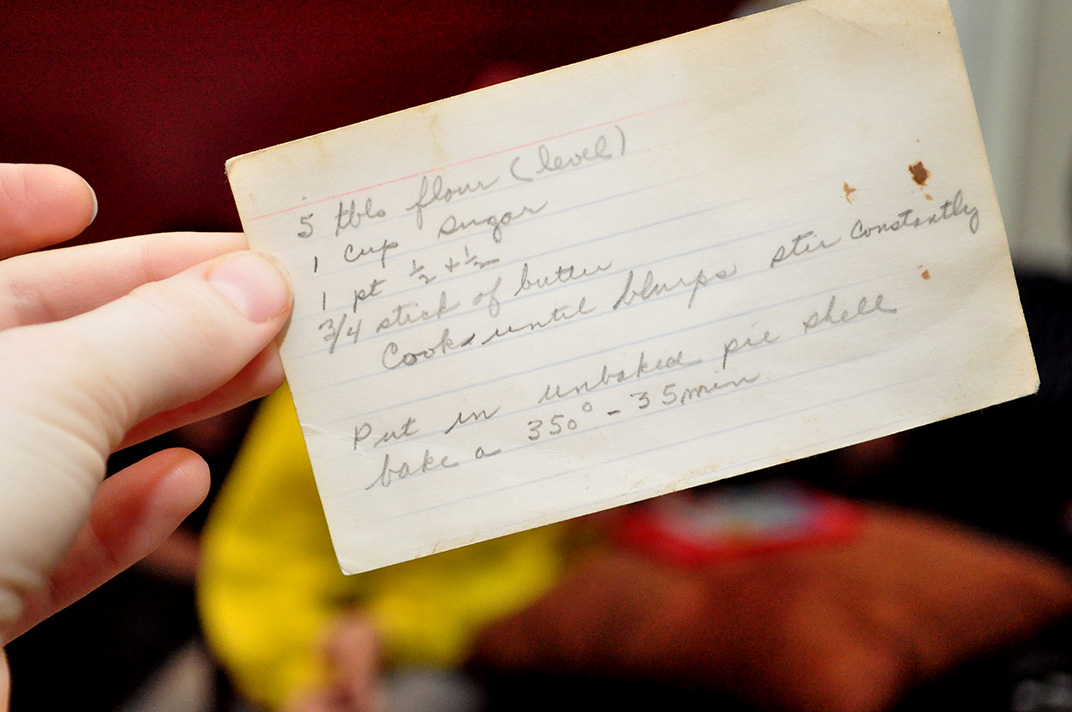 5 tbls flour (level)
1 cup sugar
1 pt ½ + ½
3/4 stick of butter
Cook until blurps stir constantly
Put in unbaked pie shell
bake a 350° - 35min